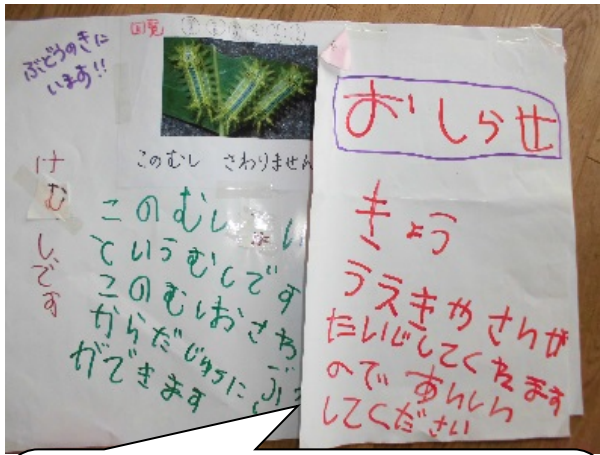 ぶどうのきに
います!!
回覧
このむし さわりません
けむしです
このむし
というむしです
このむしおさわ
からだじゅうにぶ
ができます
おしらせ
きょう
うえきやさんが
たいじしてくれます
ので あんしん
してください